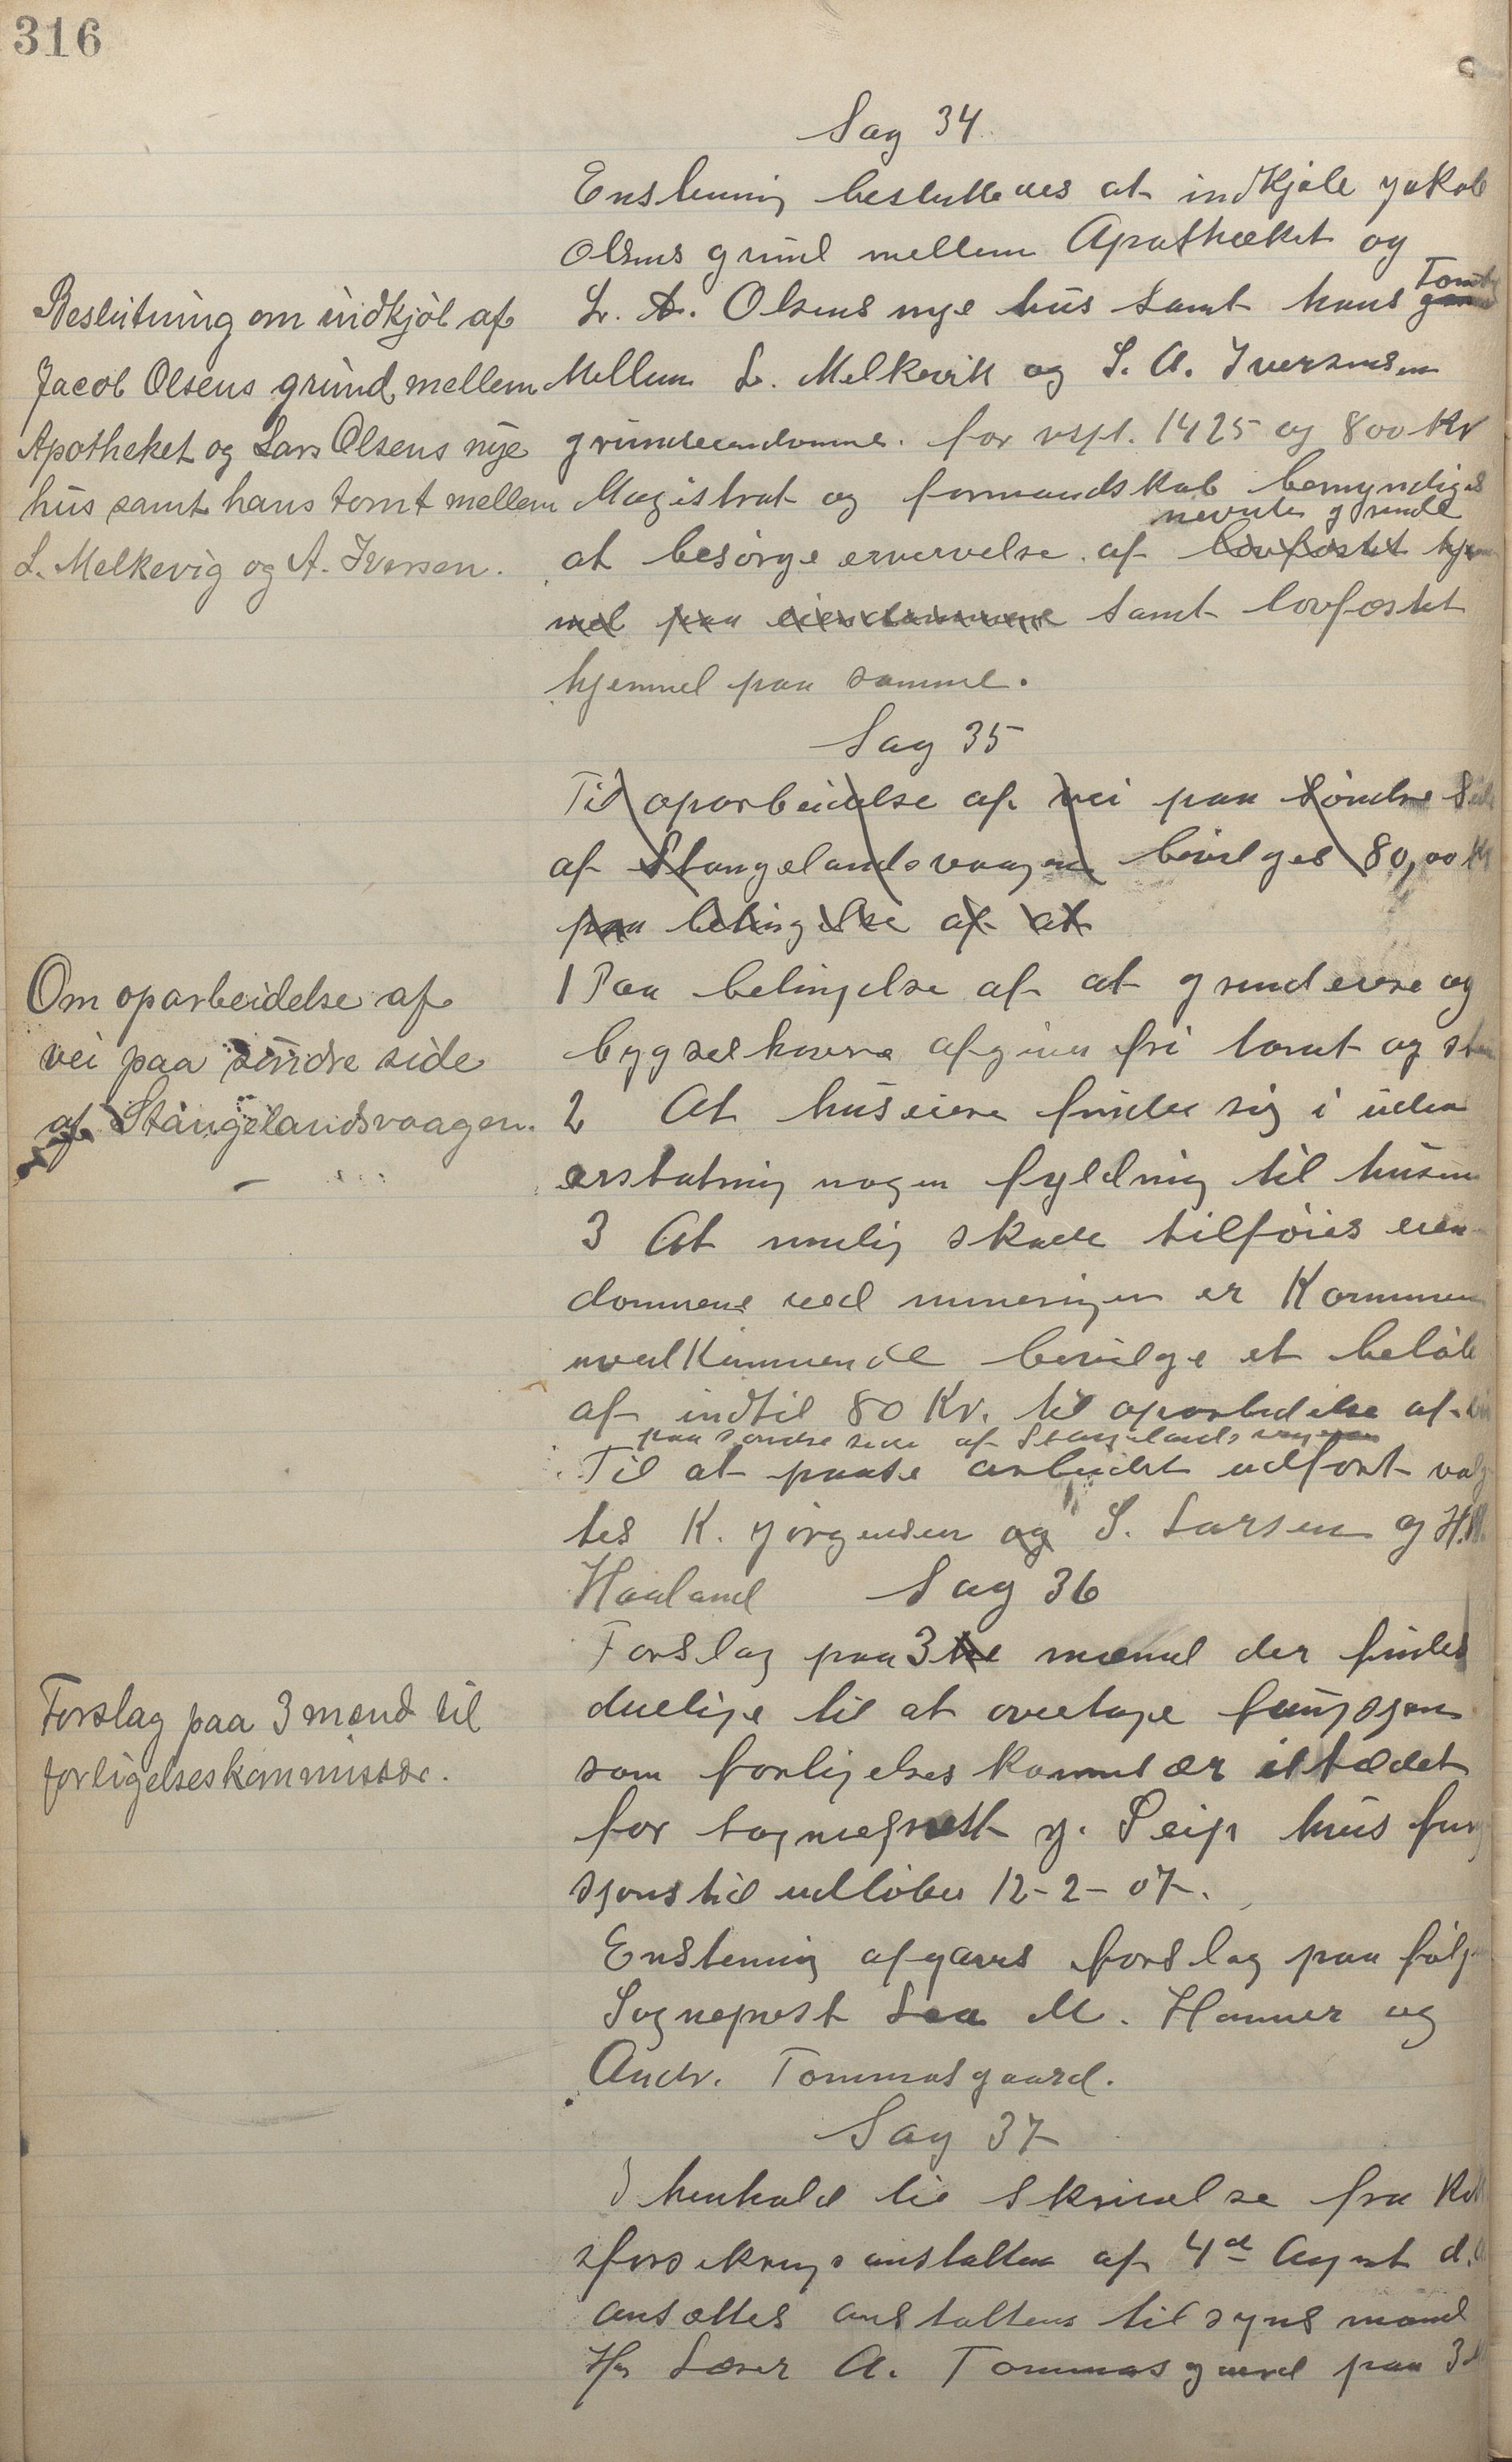 316
Sag 34.
Enstemig besluttedes at indkjøbe Jakob
Olsens grund mellem Apotheket og
L. A. Olsens nye hus samt hans Tomt
Mellem L. Melkevik og S. A. Iversens
for resp. 1425 og 800 Kr
Magistrat og formandskab bemyndiges
nevnte grunde
at besørge ervervelse af lovfæstet
mel paa eiendommene samt lovfæstet
hjemmel paa samme.
Beslutning om indkjöb af
Jacob Olsens grund mellem
Apotheket og Lars Olsens nye
hus samt hans tomt mellem
L. Melkevig og A. Iversen.
Sag 35
Til oparbeidelse af vei paa Søndre Side
af Stangelandsvaagen bevilges 80,00 Kr
paa betingelse af at
1 Paa betingelse af at grundeiere og
bygselhavere afgiver fri tomt og
2 At huseiere finder sig i uden
erstatning nogen fyldning til husene
3 At mulig skade tilføies eien-
dommene ved mineringen er Kommunen
uvedkommende bevilges et beløb
af indtil 80 Kr. til oparbeidelse af
paa søndre side af Stangelandsvaagen
Til at paase arbeidet udført valg
tes K. Jörgensen og S. Larsen og H. M.
Haaland
Om oparbeidelse af
vei paa søndre side
af Stangelandsvaagen.
Sag 36
Forslag paa 3 tre mænd der findes
duelige til at overtage fungsjon
som forligelseskommisær istædet
for sogneprest J. Seip hvis fung
sjonstid udløber 12-2-07.
Enstemig afgaves forslag paa følg
Sogneprest Lea M. Hanner og
Andr. Tommasgaard.
Forslag paa 3 mænd til
forligelseskommissær.
Sag 37
I henhold til Skrivelse fra
sforsikringsanstalten af 4de August d.
ansættes anstaltens tilsynsmand
Hr Lærer A. Tommasgaard paa 3